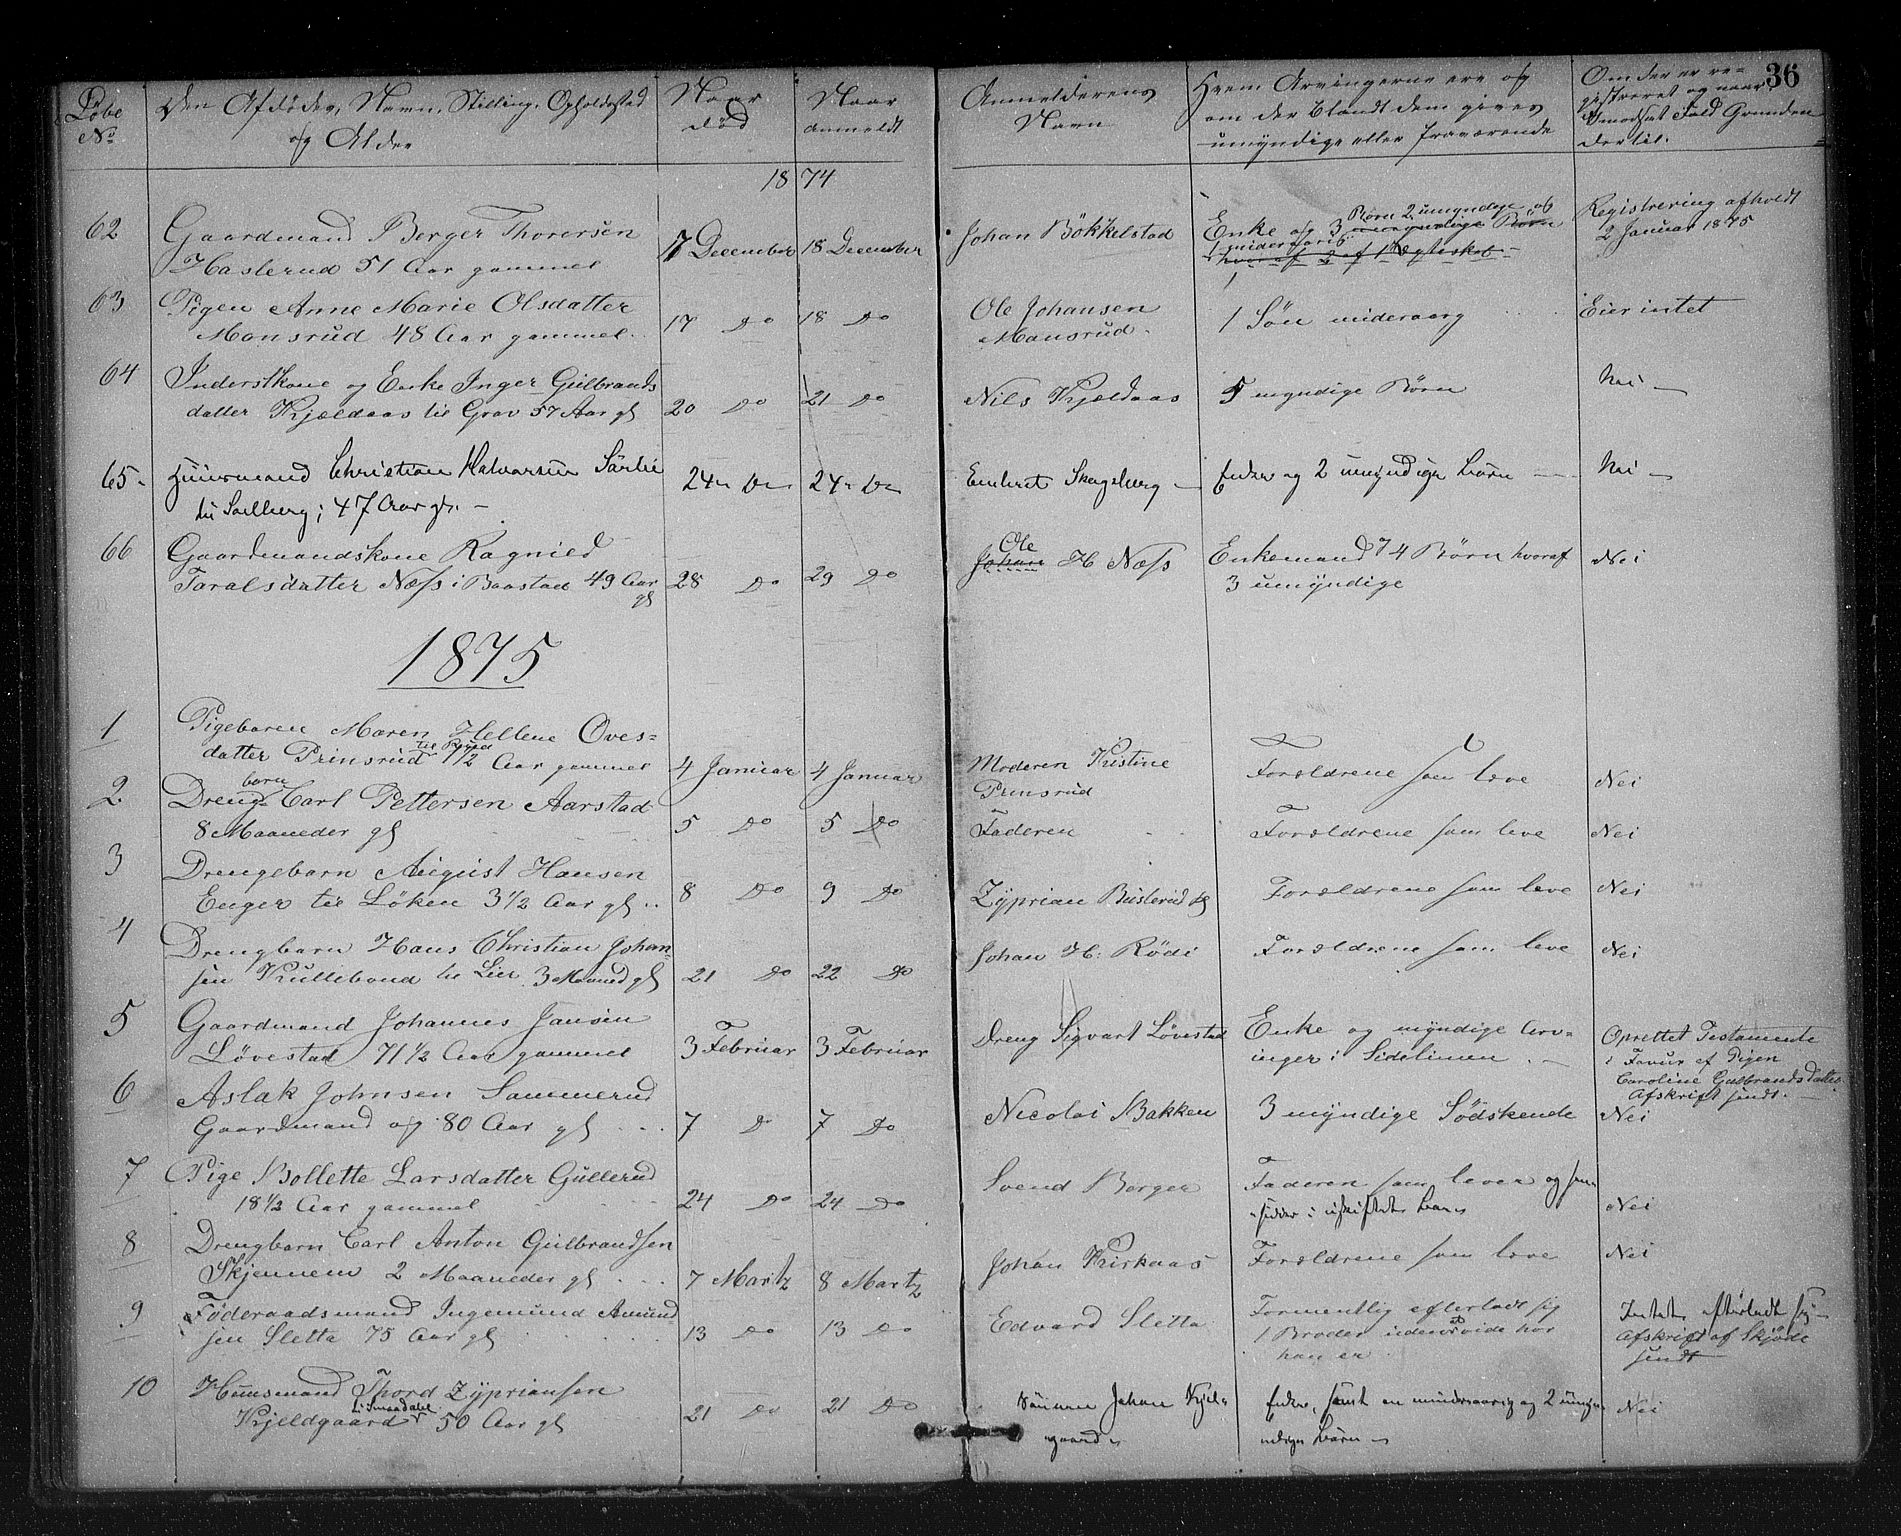 36
Løbe No
Den Afdødes Navn, Stilling, Opholdssted
og Alder
Naar
død
Naar
anmeldt
Anmelderens
Navn
Hvem Arvingerne ere og
om der blandt dem gives
umyndige eller fraværende
Om der er re-
gistreret og naar
i modsat Fald Grunden
dertil.
1874
62
Gaardmand Berger Thorersen
Haslerud 51 Aar gammel
17 December
18 December
Johan Bökkelstad
Børn 2 umyndige og
Enke og 3 umyndige Børn
1 mideraarig
hvoraf 2 af 1ste Ægteskab
Registrering afholdt
2 Januar 1875
63
Pigen Anne Marie Olsdatter
Monsrud 48 Aar gammel
17 Do
18 Do
Ole Johansen
Monsrud
1 Sön mideraarg
Eier intet
64
Inderstkone og Enke Inger Gulbrands
datter Kjældaas til Grav 57 Aar gl
20 Do
21 Do
Nils Kjældaas
5 myndige Börn
Nei
65
Huusmand Christian Halvorsen
47 Aar gl.
24 Do
24 Do
Embret Skogsberg
Enke og 2 umyndige Børn
Nei
66
Gaardmandskone Ragnild
Taralsdatter Næss i Baastad 49 Aar
gl
28 Do
29 Do
Ole
Johan H Næss
Enkemand 4 Börn hvoraf
3 umyndige
Nei
1875
1
Pigebaren Maren Hellene Oves-
datter Prinsrud til Ryud 1½ Aar gammel
4 Januar
4 Januar
Moderen Kristine
Prinsrud
Forældrene som leve
Nei
2
Drengbarn Carl Pettersen Aarstad
8 Maaneder gl
5 Do
5 Do
Faderen
Forældrene som leve
Nei
3
Drengebarn August Hansen
Enger til Löken 3 1/2 Aar gl
8 Do
9 Do
Zyprian Busterud
Forældrene som leve
Nei
4
Drengbarn Hans Christian Johan-
sen Kullebond til Lier 3 Maaned gl
21 Do
22 Do
Johan H. Rödi
Forældrene som leve
Nei
5
Gaardmand Johannes Jansen
Lövestad 71 1/2 Aar gammel
3 Februar
3 Februar
Dreng Sigvart Lövestad
Enke og myndige Arv-
inger i Sidelinien
Oprettet Testamente
i Favur af Pigen
Caroline Gulbrandsdatter
Afskrift sendt.
6
Aslak Johnsen Sammerud
Gaardmand og 80 Aar gl
7 Do
7 Do
Nicolai Bakken
3 myndige Södskende
Nei
7
Pige Bollette Larsdatter Gullerud
18 1/2 Aar gammel
24 Do
24 Do
Svend Berger
Faderen som lever og som
sidder i uskiftet Bo
Nei
8
Drengbarn Carl Anton Gulbrandsen
Skjennem 2 Maaneder gl
7 Martz
8 Martz
Johan Kirkaas
Forældrene som leve
Nei
9
Föderaadsmand Ingemund Amund-
sen Sletta 75 Aar gl
13 Do
13 Do
Edvard Sletta
Formentlig efterladt sig
1 Broder uden at vide hvor
han er
Intet efterladt sig
Afskrift af Skjöde
sendt
10
Huusmand Thord Zypriansen
Kjeldgaard 50 Aar gl
21 Do
21 Do
Sönnen Johan Kjel-
gaard
Enke, samt en mindreaarig og 2 umyn-
dige Børn
Nei